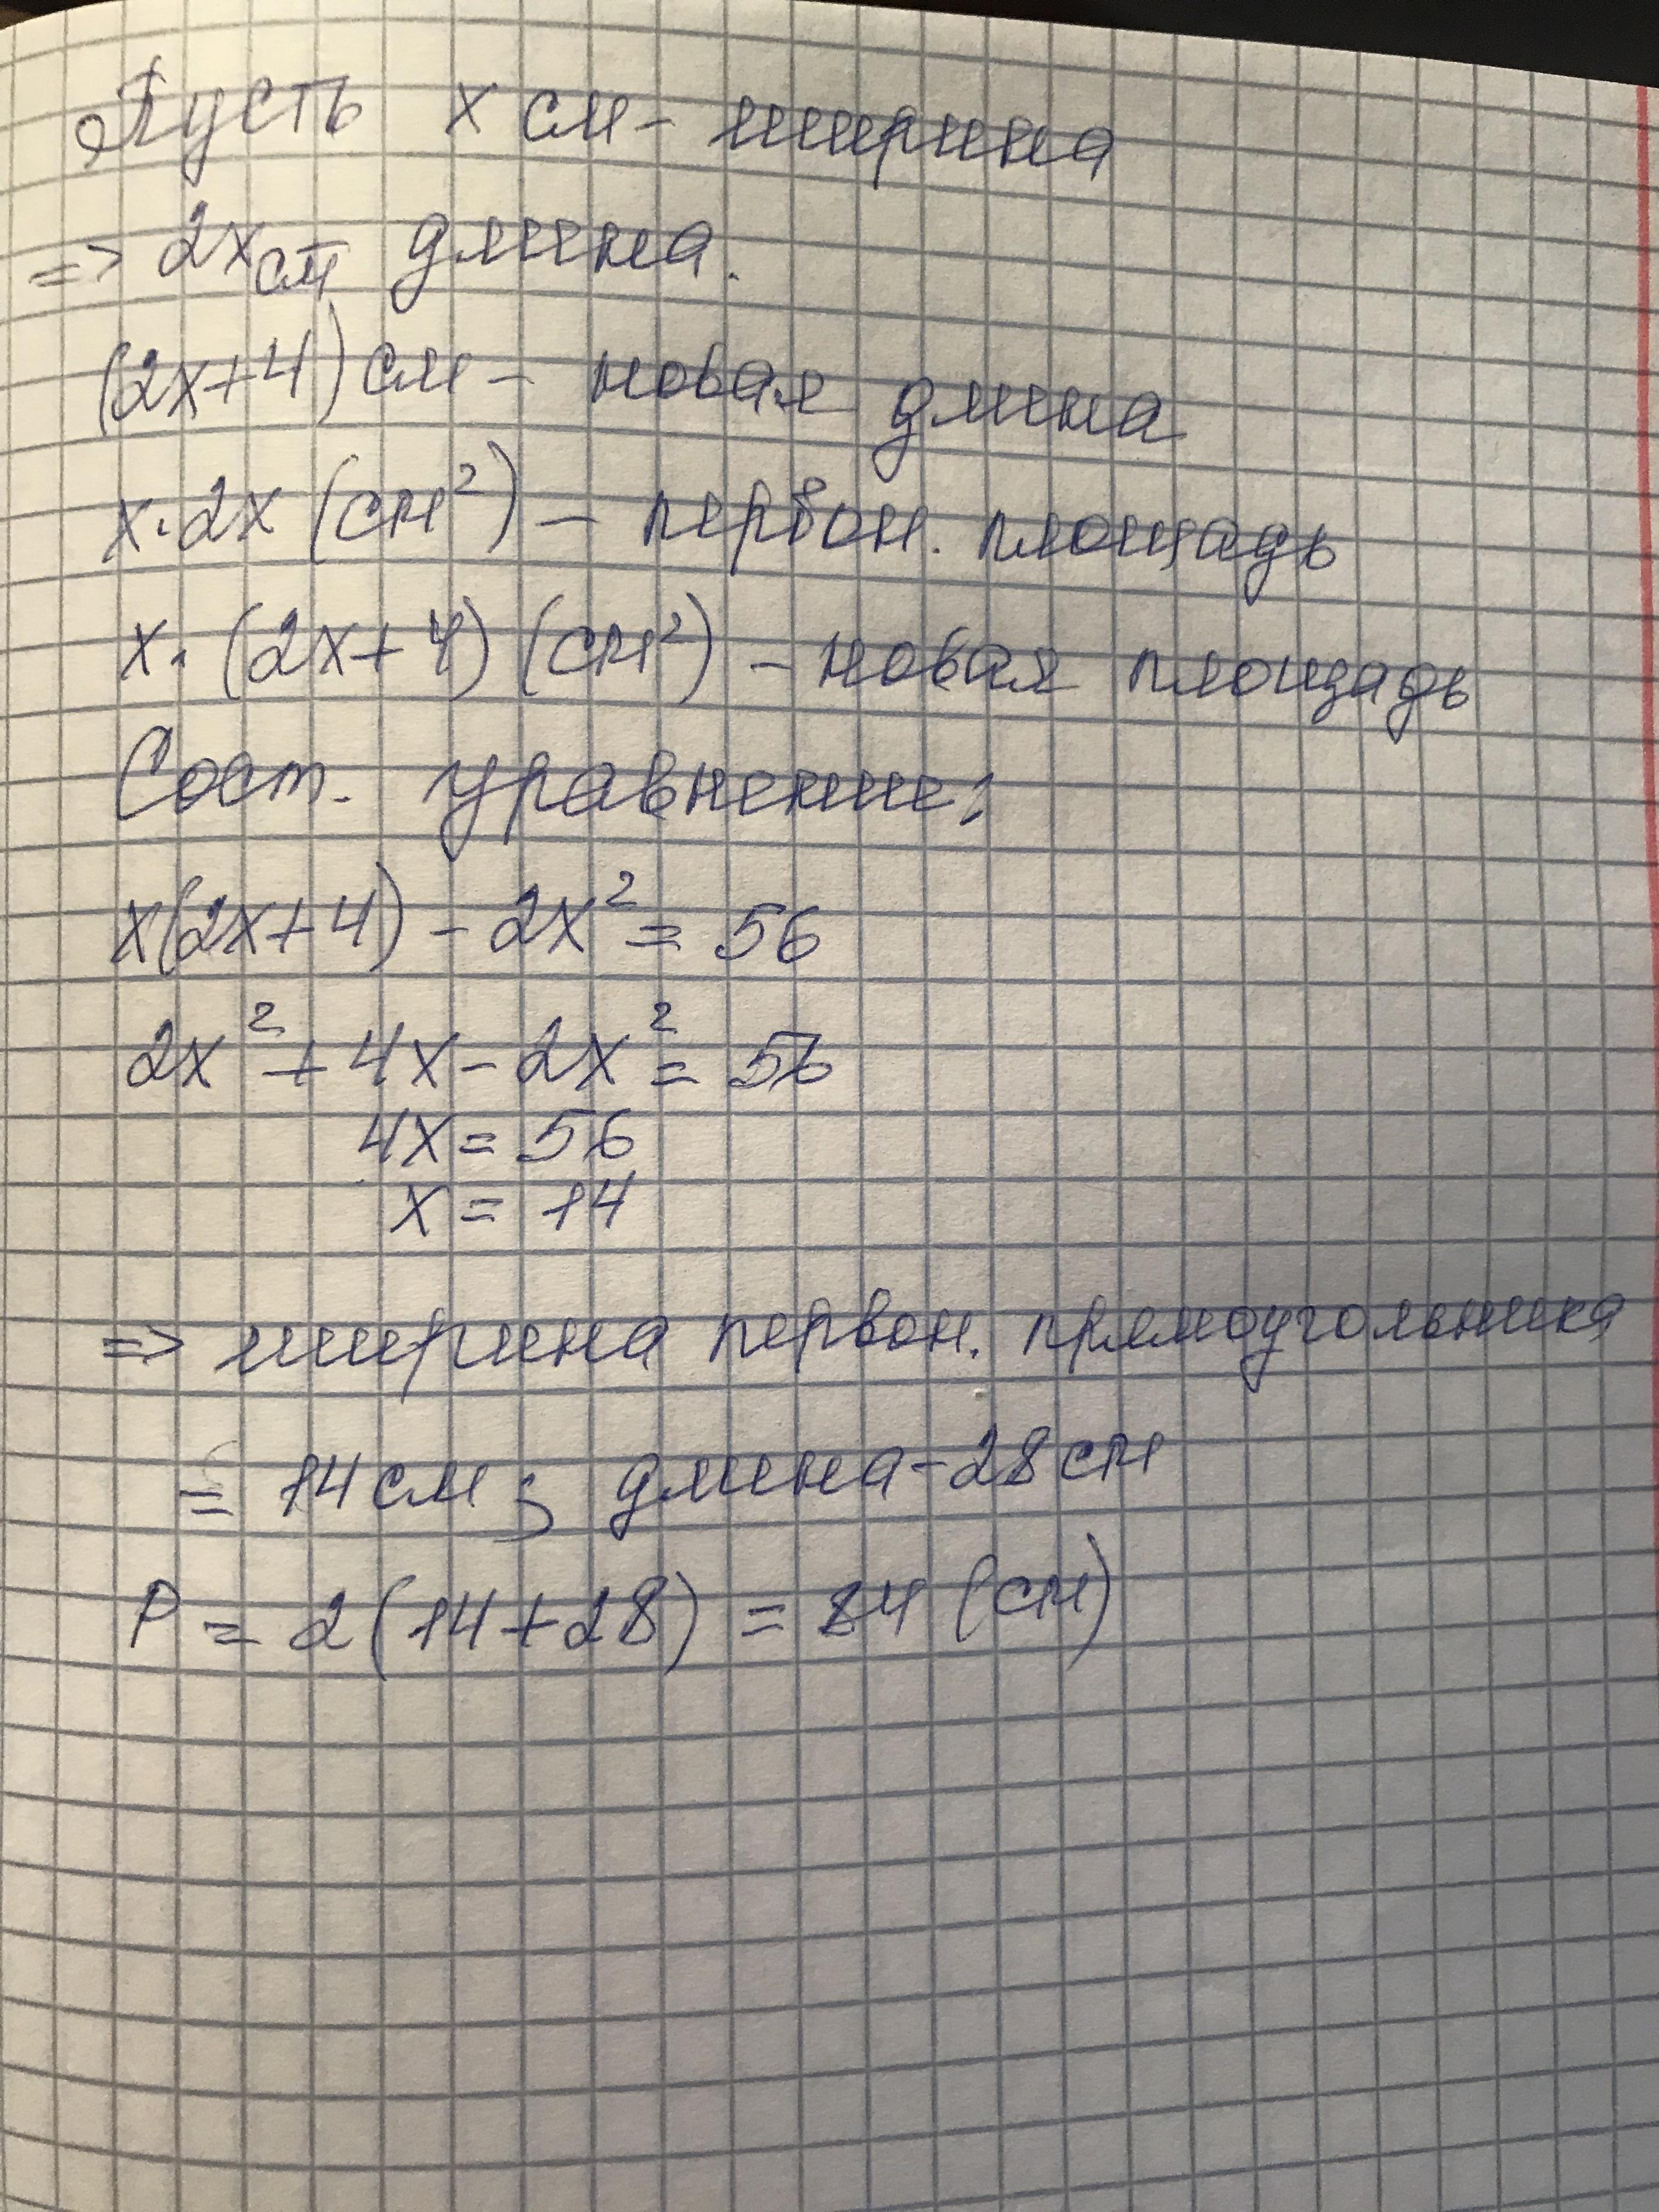 Пусть х см - ширина
=> 2х см длина.
(2х+4) см - новая длина
х·2х (см²) - первон. площадь
х·(2х+4) (см²) - новая площадь
Сост. уравнение:
х(2х+4) - 2х² = 56
2х² + 4х - 2х² = 56
4х = 56
х = 14
=> ширина первон. прямоугольника
= 14 см; длина - 28 см
Р = 2(14+28) = 84 (см)